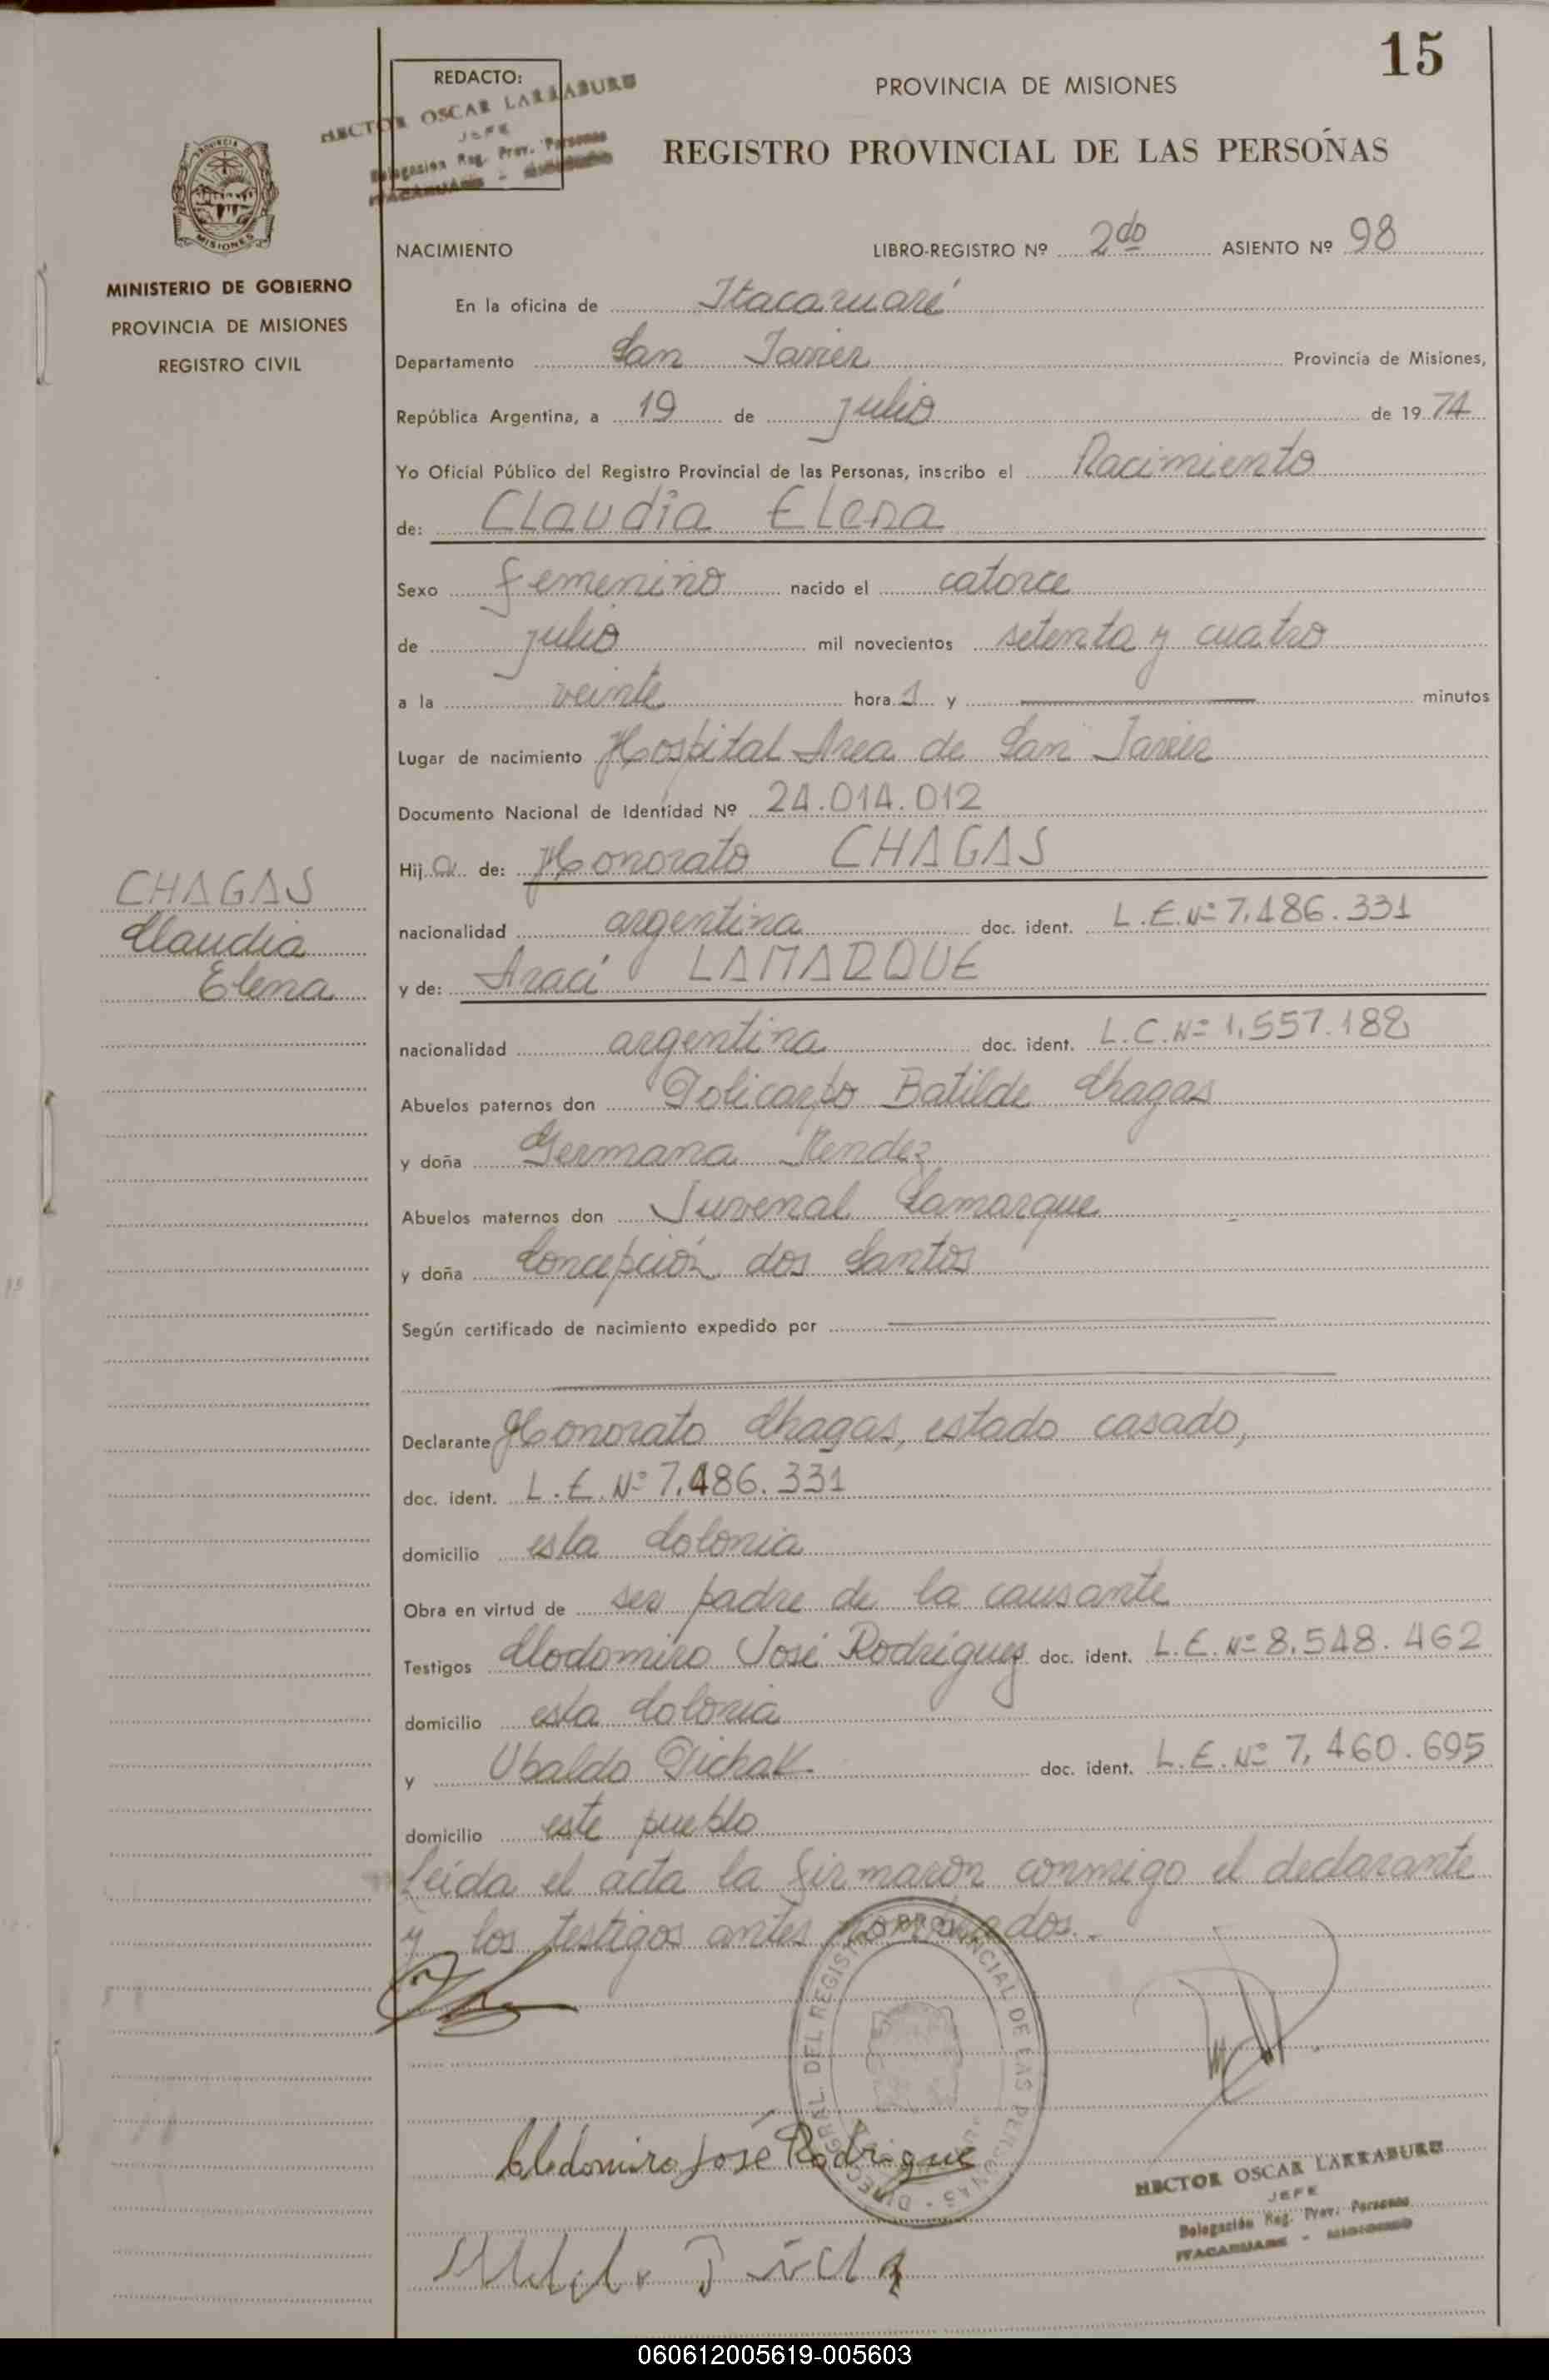 15
REDACTO:
HECTOR OSCAR LARRABURU
JEFE
Delegación Reg. Prov. Personas
ITACARUARE - MISIONES
PROVINCIA DE MISIONES
REGISTRO PROVINCIAL DE LAS PERSONAS
MISIONES
MINISTERIO DE GOBIERNO
PROVINCIA DE MISIONES
REGISTRO CIVIL
NACIMIENTO LIBRO-REGISTRO Nº 2do ASIENTO Nº 98
En la oficina de Itacaruaré
Departamento San Javier Provincia de Misiones,
República Argentina, a 19 de julio de 19 74
Yo Oficial Público del Registro Provincial de las Personas, inscribo el Nacimiento
de: Claudia Elena
Sexo femenino nacido el catorce
de julio mil novecientos setenta y cuatro
a la veinte hora s y minutos
Lugar de nacimiento Hospital Area de San Javier
Documento Nacional de Identidad Nº 24.014.012
Hij a de: Honorato CHAGAS
CHAGAS
Claudia
Elena
nacionalidad argentina doc. ident. L.E. Nº 7.486.331
y de: Araci LAMARQUE
nacionalidad argentina doc. ident. L.C. Nº 1.557.188
Abuelos paternos don Policarpo Batilde Chagas
y doña Germana Mendez
Abuelos maternos don Juvenal Lamarque
y doña Concepción dos Santos
Según certificado de nacimiento expedido por
Declarante Honorato Chagas, estado casado,
doc. ident. L.E. Nº 7.486.331
domicilio esta Colonia
Obra en virtud de ser padre de la causante
Testigos Clodomiro José Rodrigues doc. ident. L.E. Nº 8.548.462
domicilio esta Colonia
y Ubaldo Pichak. doc. ident. L.E. Nº 7.460.695
domicilio este pueblo
Leida el acta la firmaron conmigo el declarante
y los testigos antes nombrados.-
DIRECC. GRAL. DEL REGISTRO PROVINCIAL DE LAS PERSONAS
Clodomiro José Rodrigue
HECTOR OSCAR LARRABURU
JEFE
Delegación Reg. Prov. Personas
ITACARUARE - MISIONES
060612005619-005603